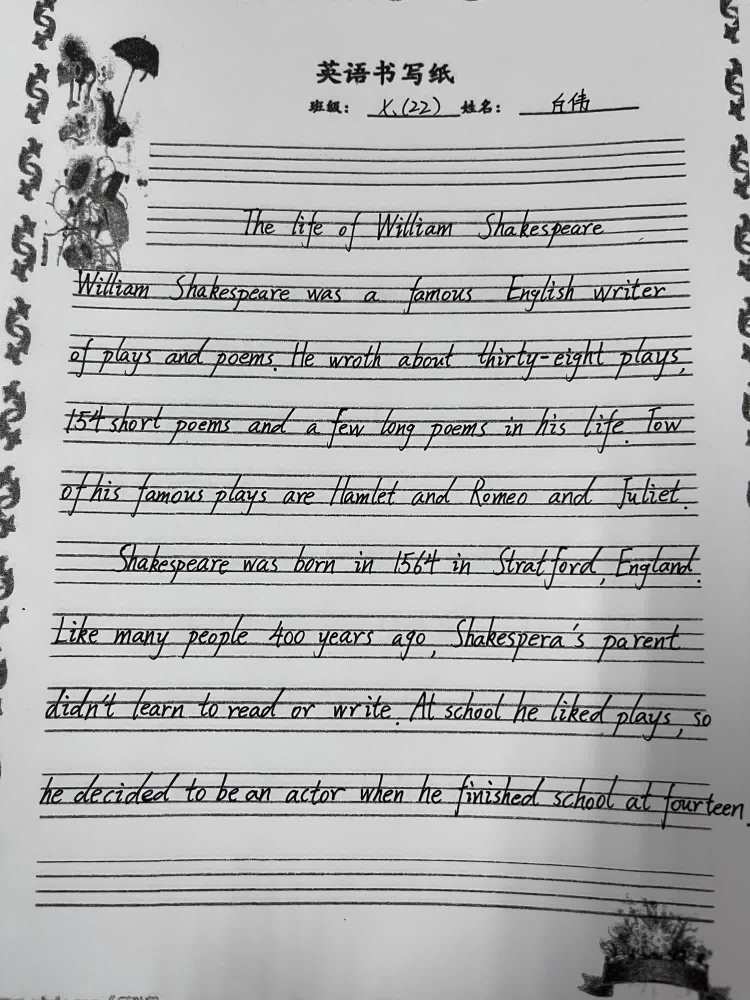 英语书写纸
班级： 八(22) 姓名：
The life of William Shakespeare
William Shakespeare was a famous English writer
of plays and poems. He wroth about thirty-eight plays,
154 short poems and a few long poems in his life. Tow
of his famous plays are Hamlet and Romeo and Juliet.
Shakespeare was born in 1564 in Stratford, England.
Like many people 400 years ago, Shakespera's parent
didn't learn to read or write. At school he liked plays, so
he decided to be an actor when he finished school at fourteen.